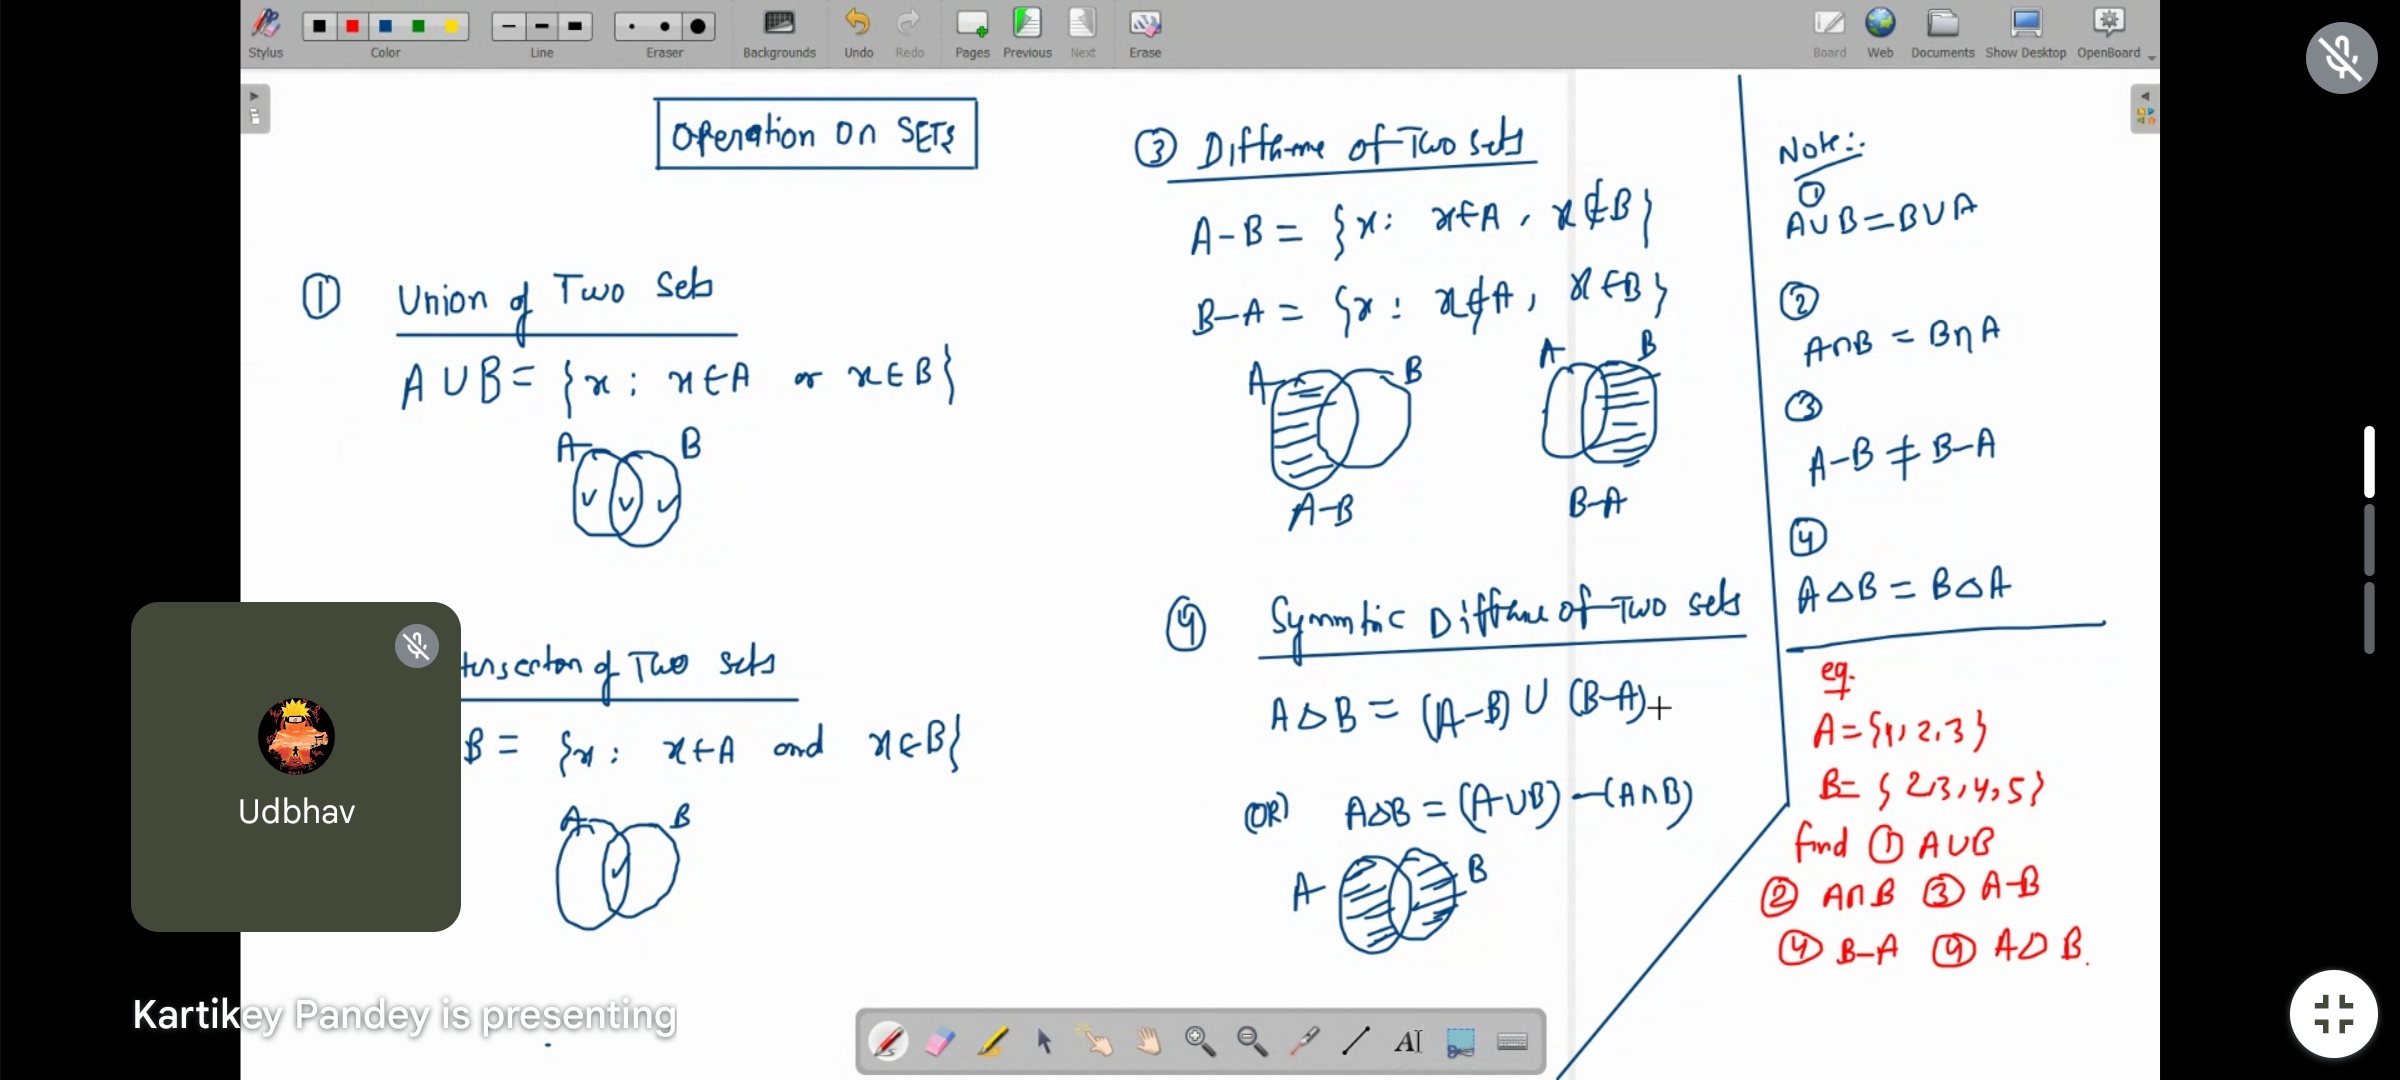 Stylus
Color
Line
Eraser
Backgrounds
Undo
Redo
Pages
Previous
Next
Erase
Board
Web
Documents
Show Desktop
OpenBoard
Operation on SETS
① Union of Two Sets
A ∪ B = {x : x ∈ A or x ∈ B}
A B
of Two sets
B = {x : x ∈ A and x ∈ B}
A B
③ of Two sets
A - B = {x : x ∈ A , x ∉ B}
B - A = {x : x ∉ A , x ∈ B}
A B
A B
A-B
B-A
④ of Two sets
A △ B = (A-B) ∪ (B-A)
(OR) A△B = (A∪B) - (A∩B)
A B
Note:-
①
A∪B = B∪A
②
A∩B = B∩A
③
A-B ≠ B-A
④
A△B = B△A
eg.
A = {1, 2, 3}
B = {2, 3, 4, 5}
find ① A∪B
② A∩B ③ A-B
④ B-A ④ A△B.
Udbhav
Kartikey Pandey is presenting
AI